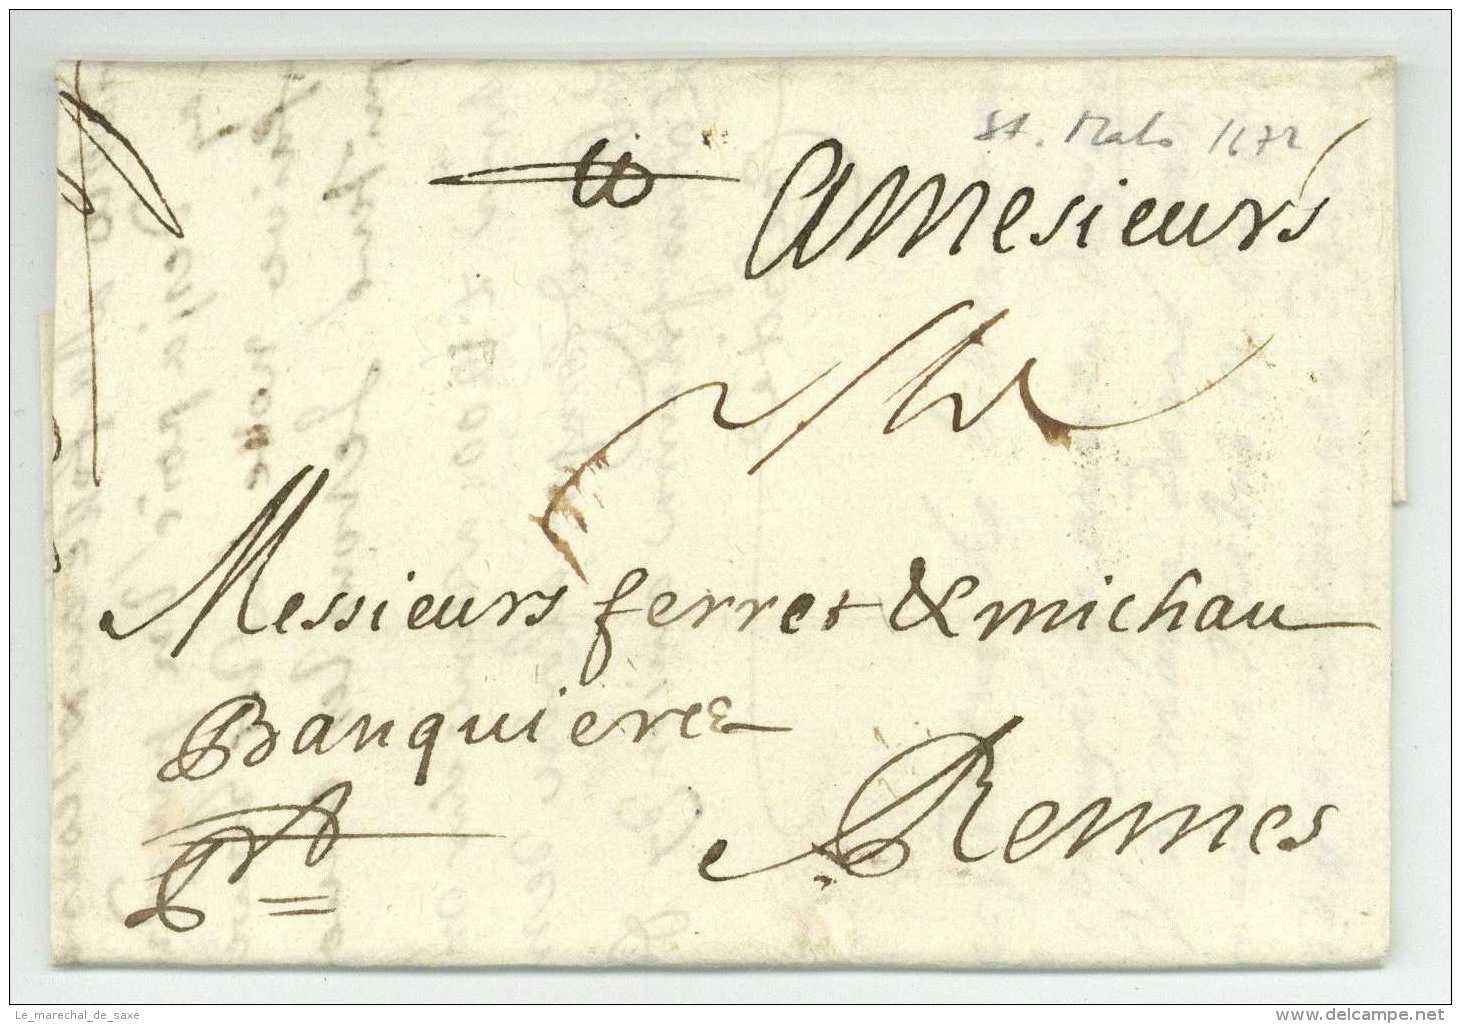 St. Malo 1672
AMesieurs
Messieurs ferret & michau
Banquiers
A Rennes
Le_marechal_de_saxe
www.delcampe.net